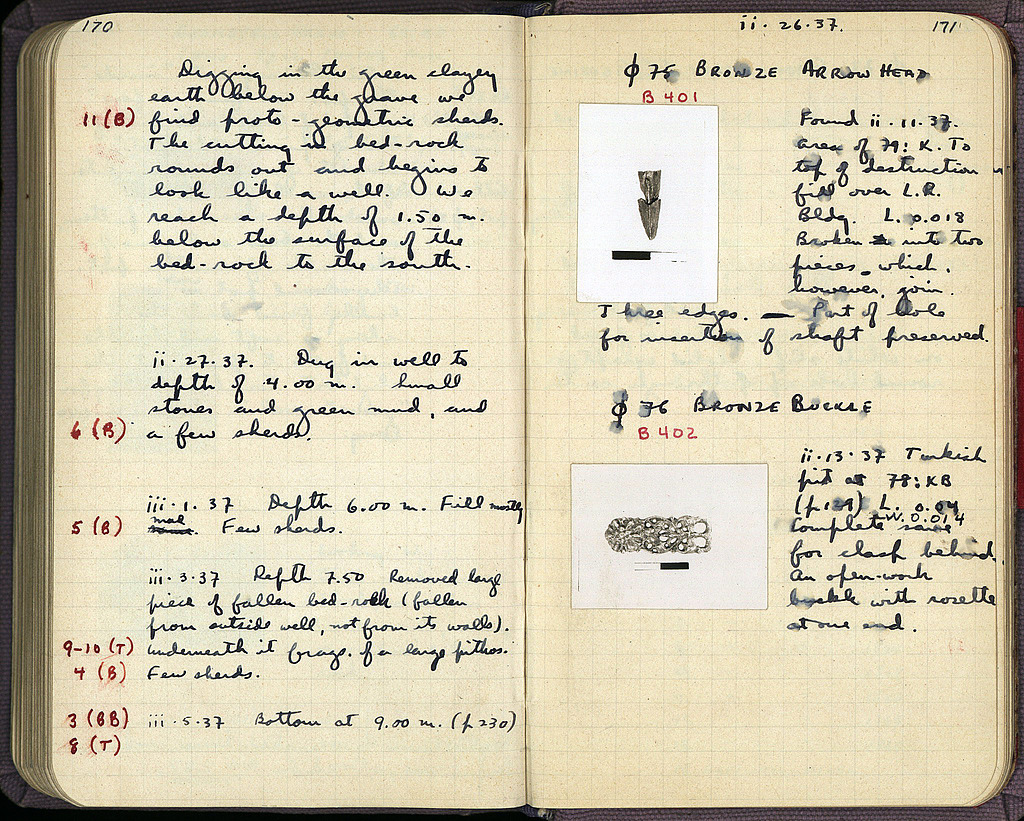 170
Digging in the green clayey
earth below the grave we
11 (B) find proto-geometric sherds.
The cutting in bed-rock
rounds out and begins to
look like a well. We
reach a depth of 1.50 m.
below the surface of the
bed-rock to the south.
ii. 27. 37. Dug in well to
depth of 4.00 m. Small
stones and green mud, and
6 (B) a few sherds.
iii. 1. 37 Depth 6.00 m. Fill mostly
mud
5 (B) Few sherds.
iii. 3. 37 Depth 7.50 Removed large
piece of fallen bed-rock (fallen
from outside well, not from its walls).
9-10 (T) Underneath it frags. of a large pithos.
4 (B) Few sherds.
3 (BB) iii. 5. 37 Bottom at 9.00 m. (p 230)
8 (T)
ii. 26. 37. 171
ϕ 75 BRONZE ARROW HEAD
B 401
Found ii. 11. 37.
area of 79: K. To
top of destruction
fill over L.R.
Bldg. L. 0.018
Broken into two
pieces, which,
however, join.
Three edges. — Part of hole
for insertion of shaft preserved.
ϕ 76 BRONZE BUCKLE
B 402
ii. 13. 37 Turkish
pit at 78: KB
(p. 129) L. 0.04
W. 0.014
Complete save
for clasp behind.
An open-work
buckle with rosette
at one end.